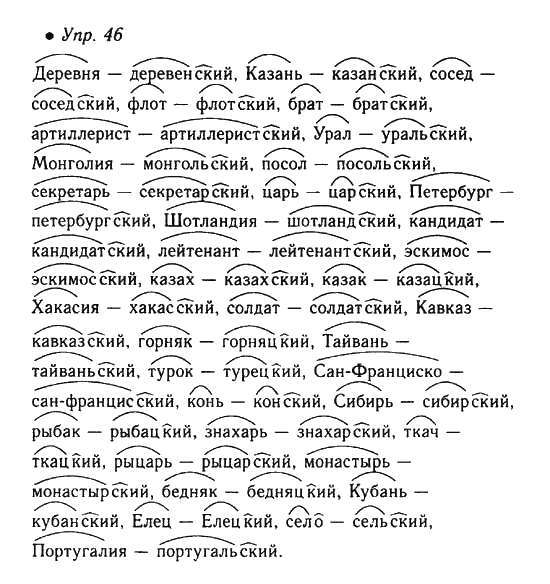 • Упр. 46
Деревня — деревенский, Казань — казанский, сосед —
соседский, флот — флотский, брат — братский,
артиллерист — артиллеристский, Урал — уральский,
Монголия — монгольский, посол — посольский,
секретарь — секретарский, царь — царский, Петербург —
петербургский, Шотландия — шотландский, кандидат —
кандидатский, лейтенант — лейтенантский, эскимос —
эскимосский, казах — казахский, казак — казацкий,
Хакасия — хакасский, солдат — солдатский, Кавказ —
кавказский, горняк — горняцкий, Тайвань —
тайваньский, турок — турецкий, Сан-Франциско —
сан-францисский, конь — конский, Сибирь — сибирский,
рыбак — рыбацкий, знахарь — знахарский, ткач —
ткацкий, рыцарь — рыцарский, монастырь —
монастырский, бедняк — бедняцкий, Кубань —
кубанский, Елец — Елецкий, село — сельский,
Португалия — португальский.